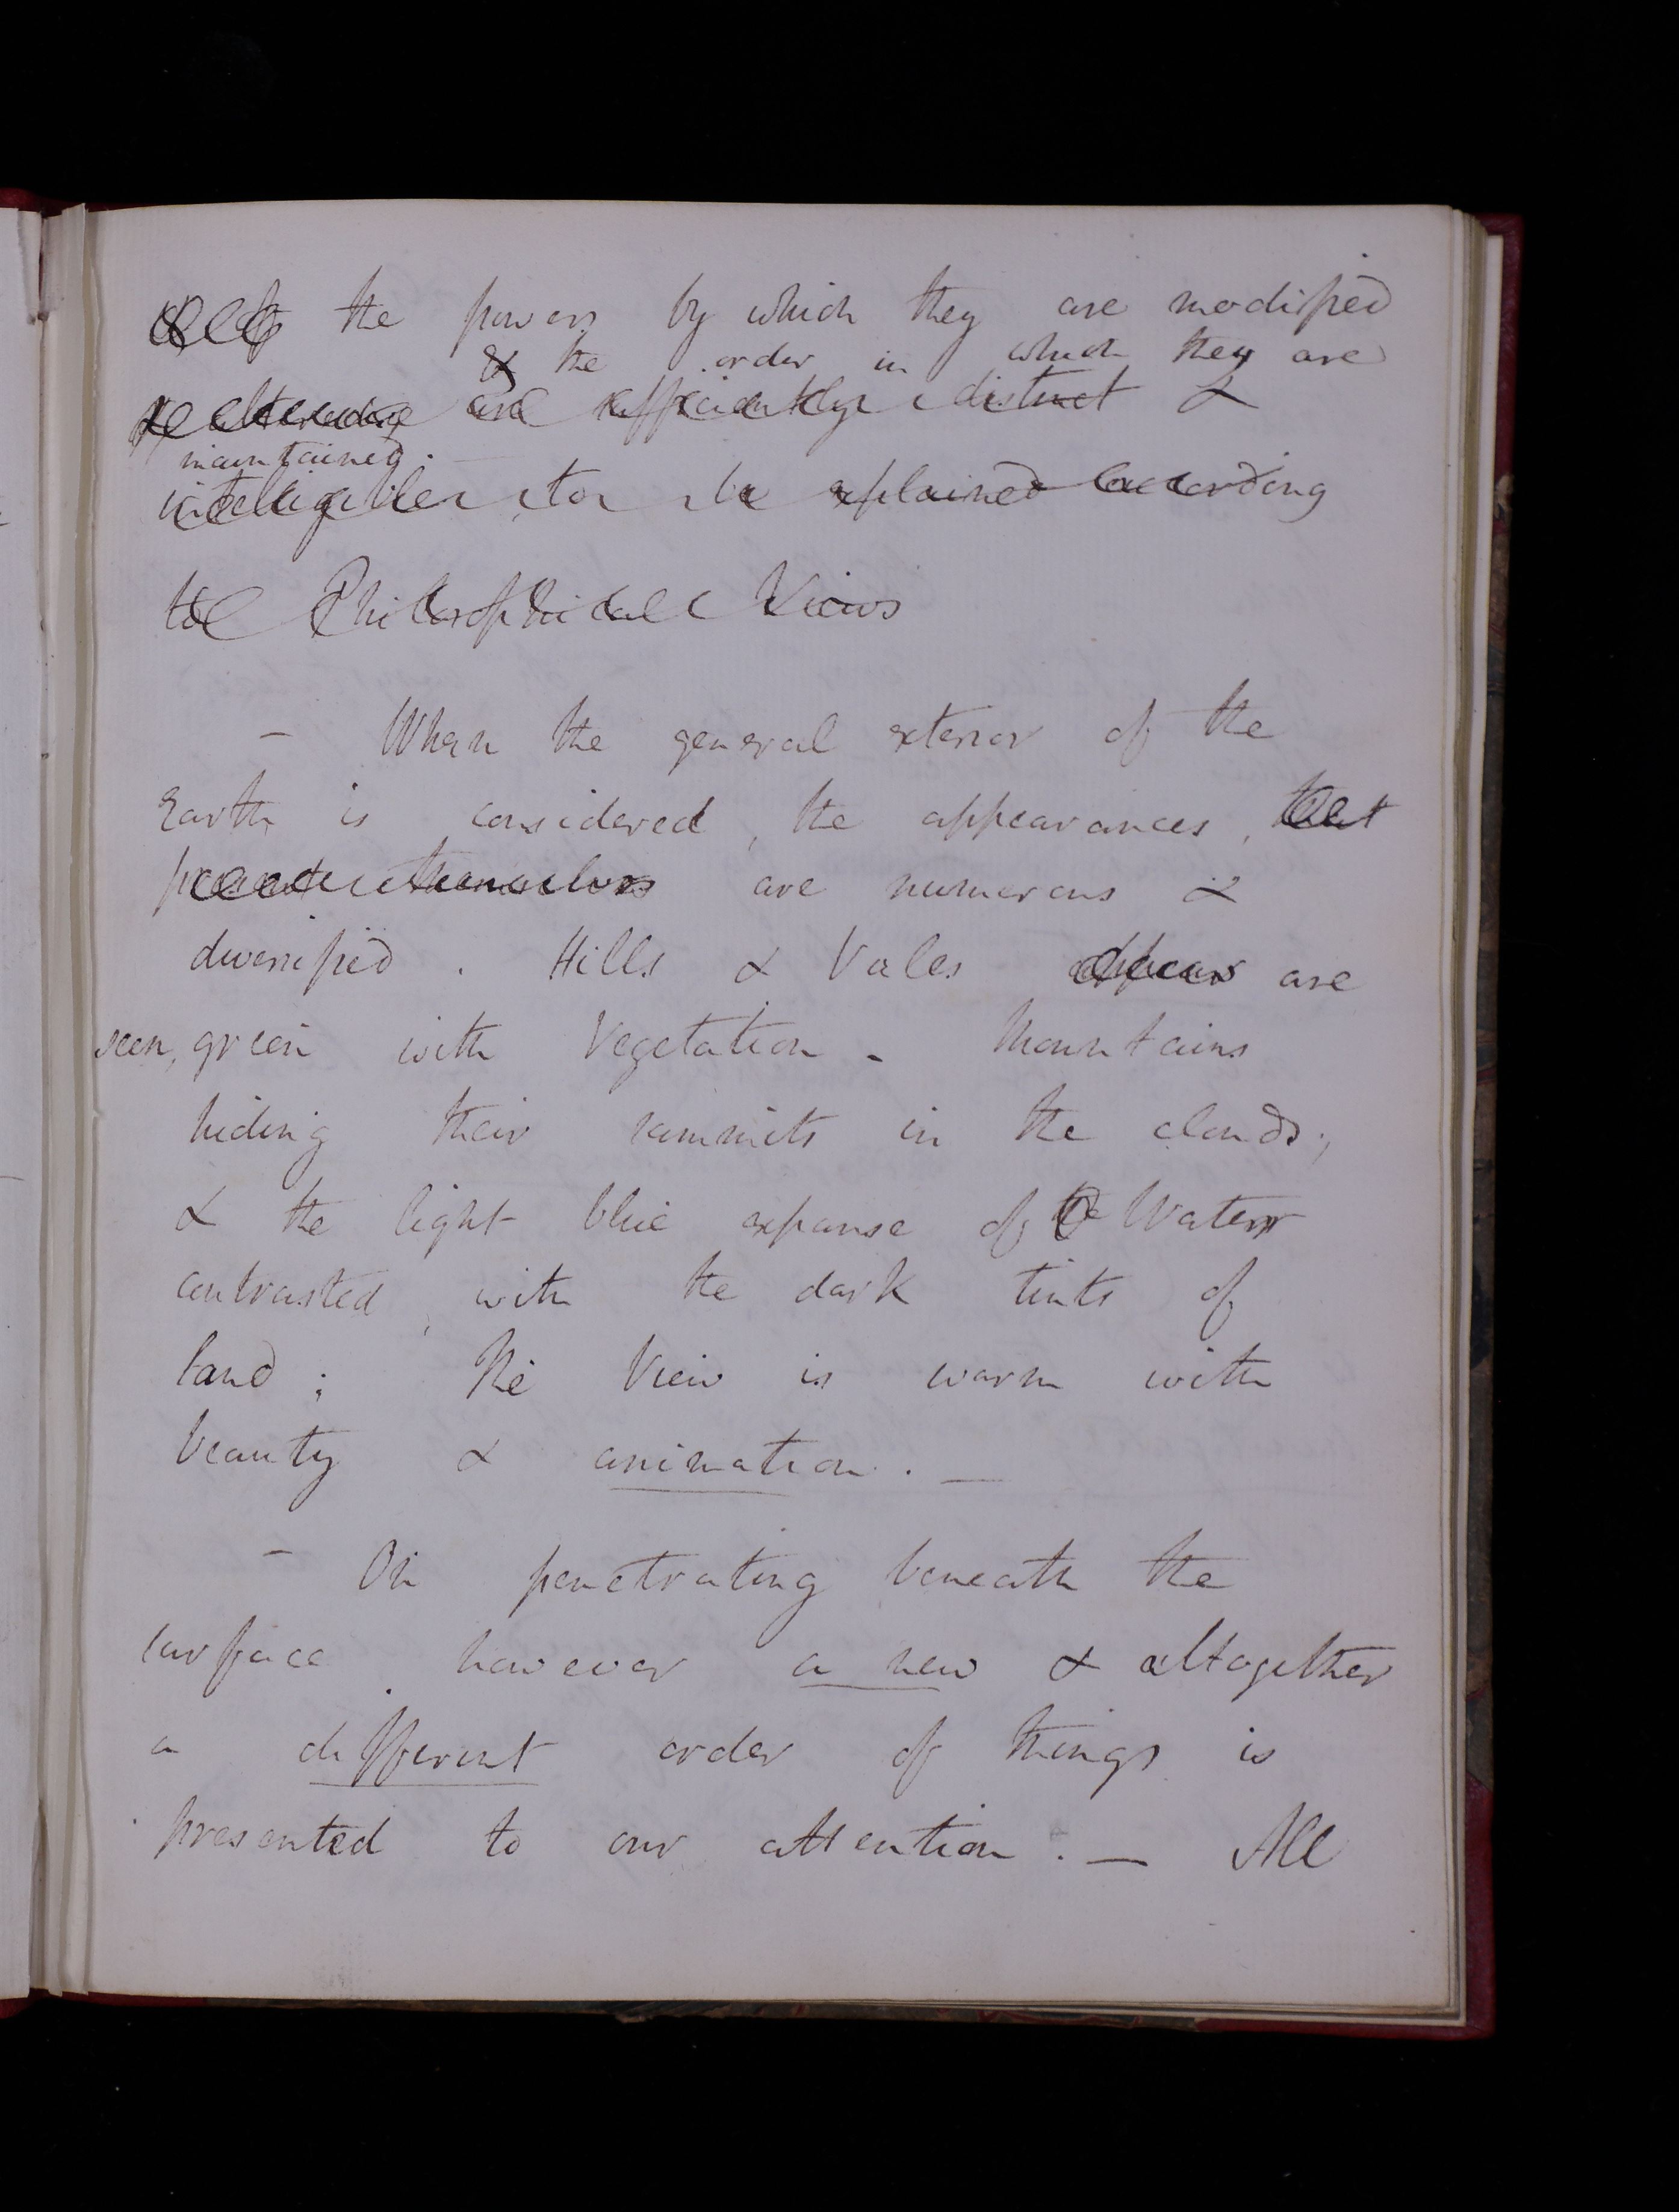 the powers by which they are modified
& the order in which they are
are sufficiently distinct &
maintained.
intelligible to be explained according
to Philosophical Views
— When the general exterior of the
Earth is considered, the appearances, that
present themselves are numerous &
diversified. Hills & Vales appear are
seen, green with Vegetation - Mountains
hiding their summits in the clouds;
& the light blue expanse of the Water
contrasted, with the dark tints of
land; The View is warm with
beauty & animation. —
— On penetrating beneath the
surface however a new & altogether
a different order of things is
presented to our attention. — All